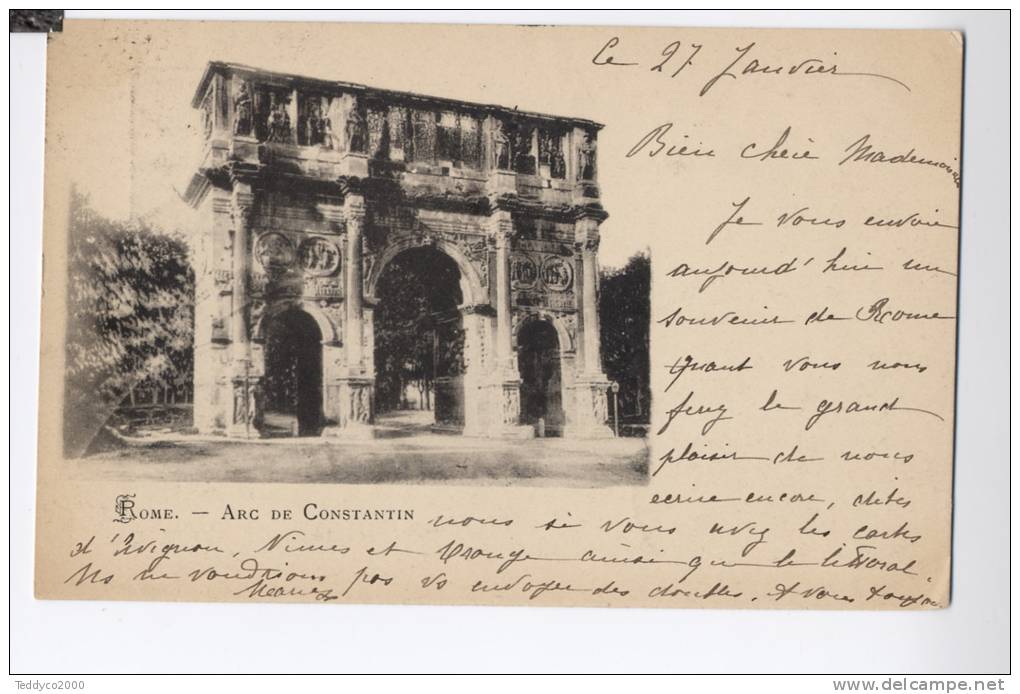 Le 27 Janvier
Bien chère Mademoiselle
Je vous envoie
aujourd'hui un
souvenir de Rome
Quant vous nous
ferez le grand
plaisir de nous
ecrire encore, dites
Rome. — Arc de Constantin
nous si vous avez les cartes
d'Avignon, Nimes et Orange ainsi que le littoral.
Ns ne voudrions pas vs envoyer des doubles. A vous toujours
Marie
Teddyco2000
www.delcampe.net